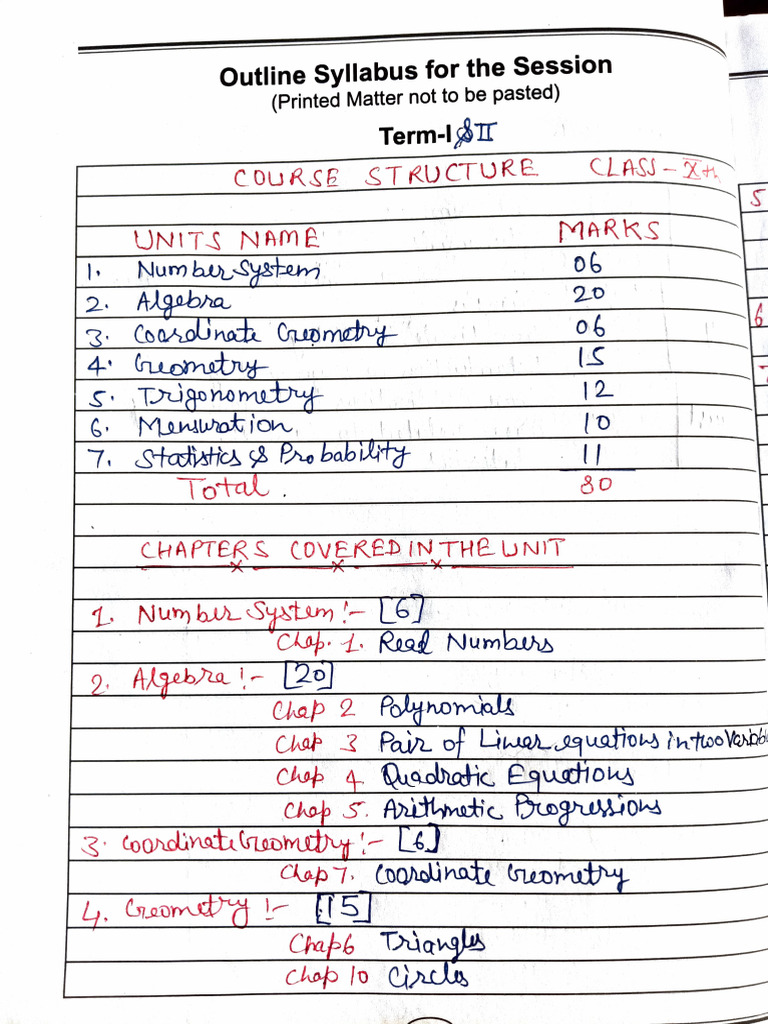 Outline Syllabus for the Session
(Printed Matter not to be pasted)
Term-I & II
COURSE STRUCTURE CLASS - Xth
UNITS NAME MARKS
1. Number System 06
2. Algebra 20
3. Coordinate Geometry 06
4. Geometry 15
5. Trigonometry 12
6. Mensuration 10
7. Statistics & Probability 11
Total. 80
CHAPTERS COVERED IN THE UNIT
1. Number System :- [6]
Chap. 1. Read Numbers
2. Algebra :- [20]
Chap 2 Polynomials
Chap 3 Pair of Linear equations in two Variab
Chap 4 Quadratic Equations
Chap 5. Arithmetic Progressions
3. Coordinate Geometry :- [6]
Chap 7. Coordinate Geometry
4. Geometry :- [15]
Chap 6 Triangles
Chap 10 Circles
5
6
7